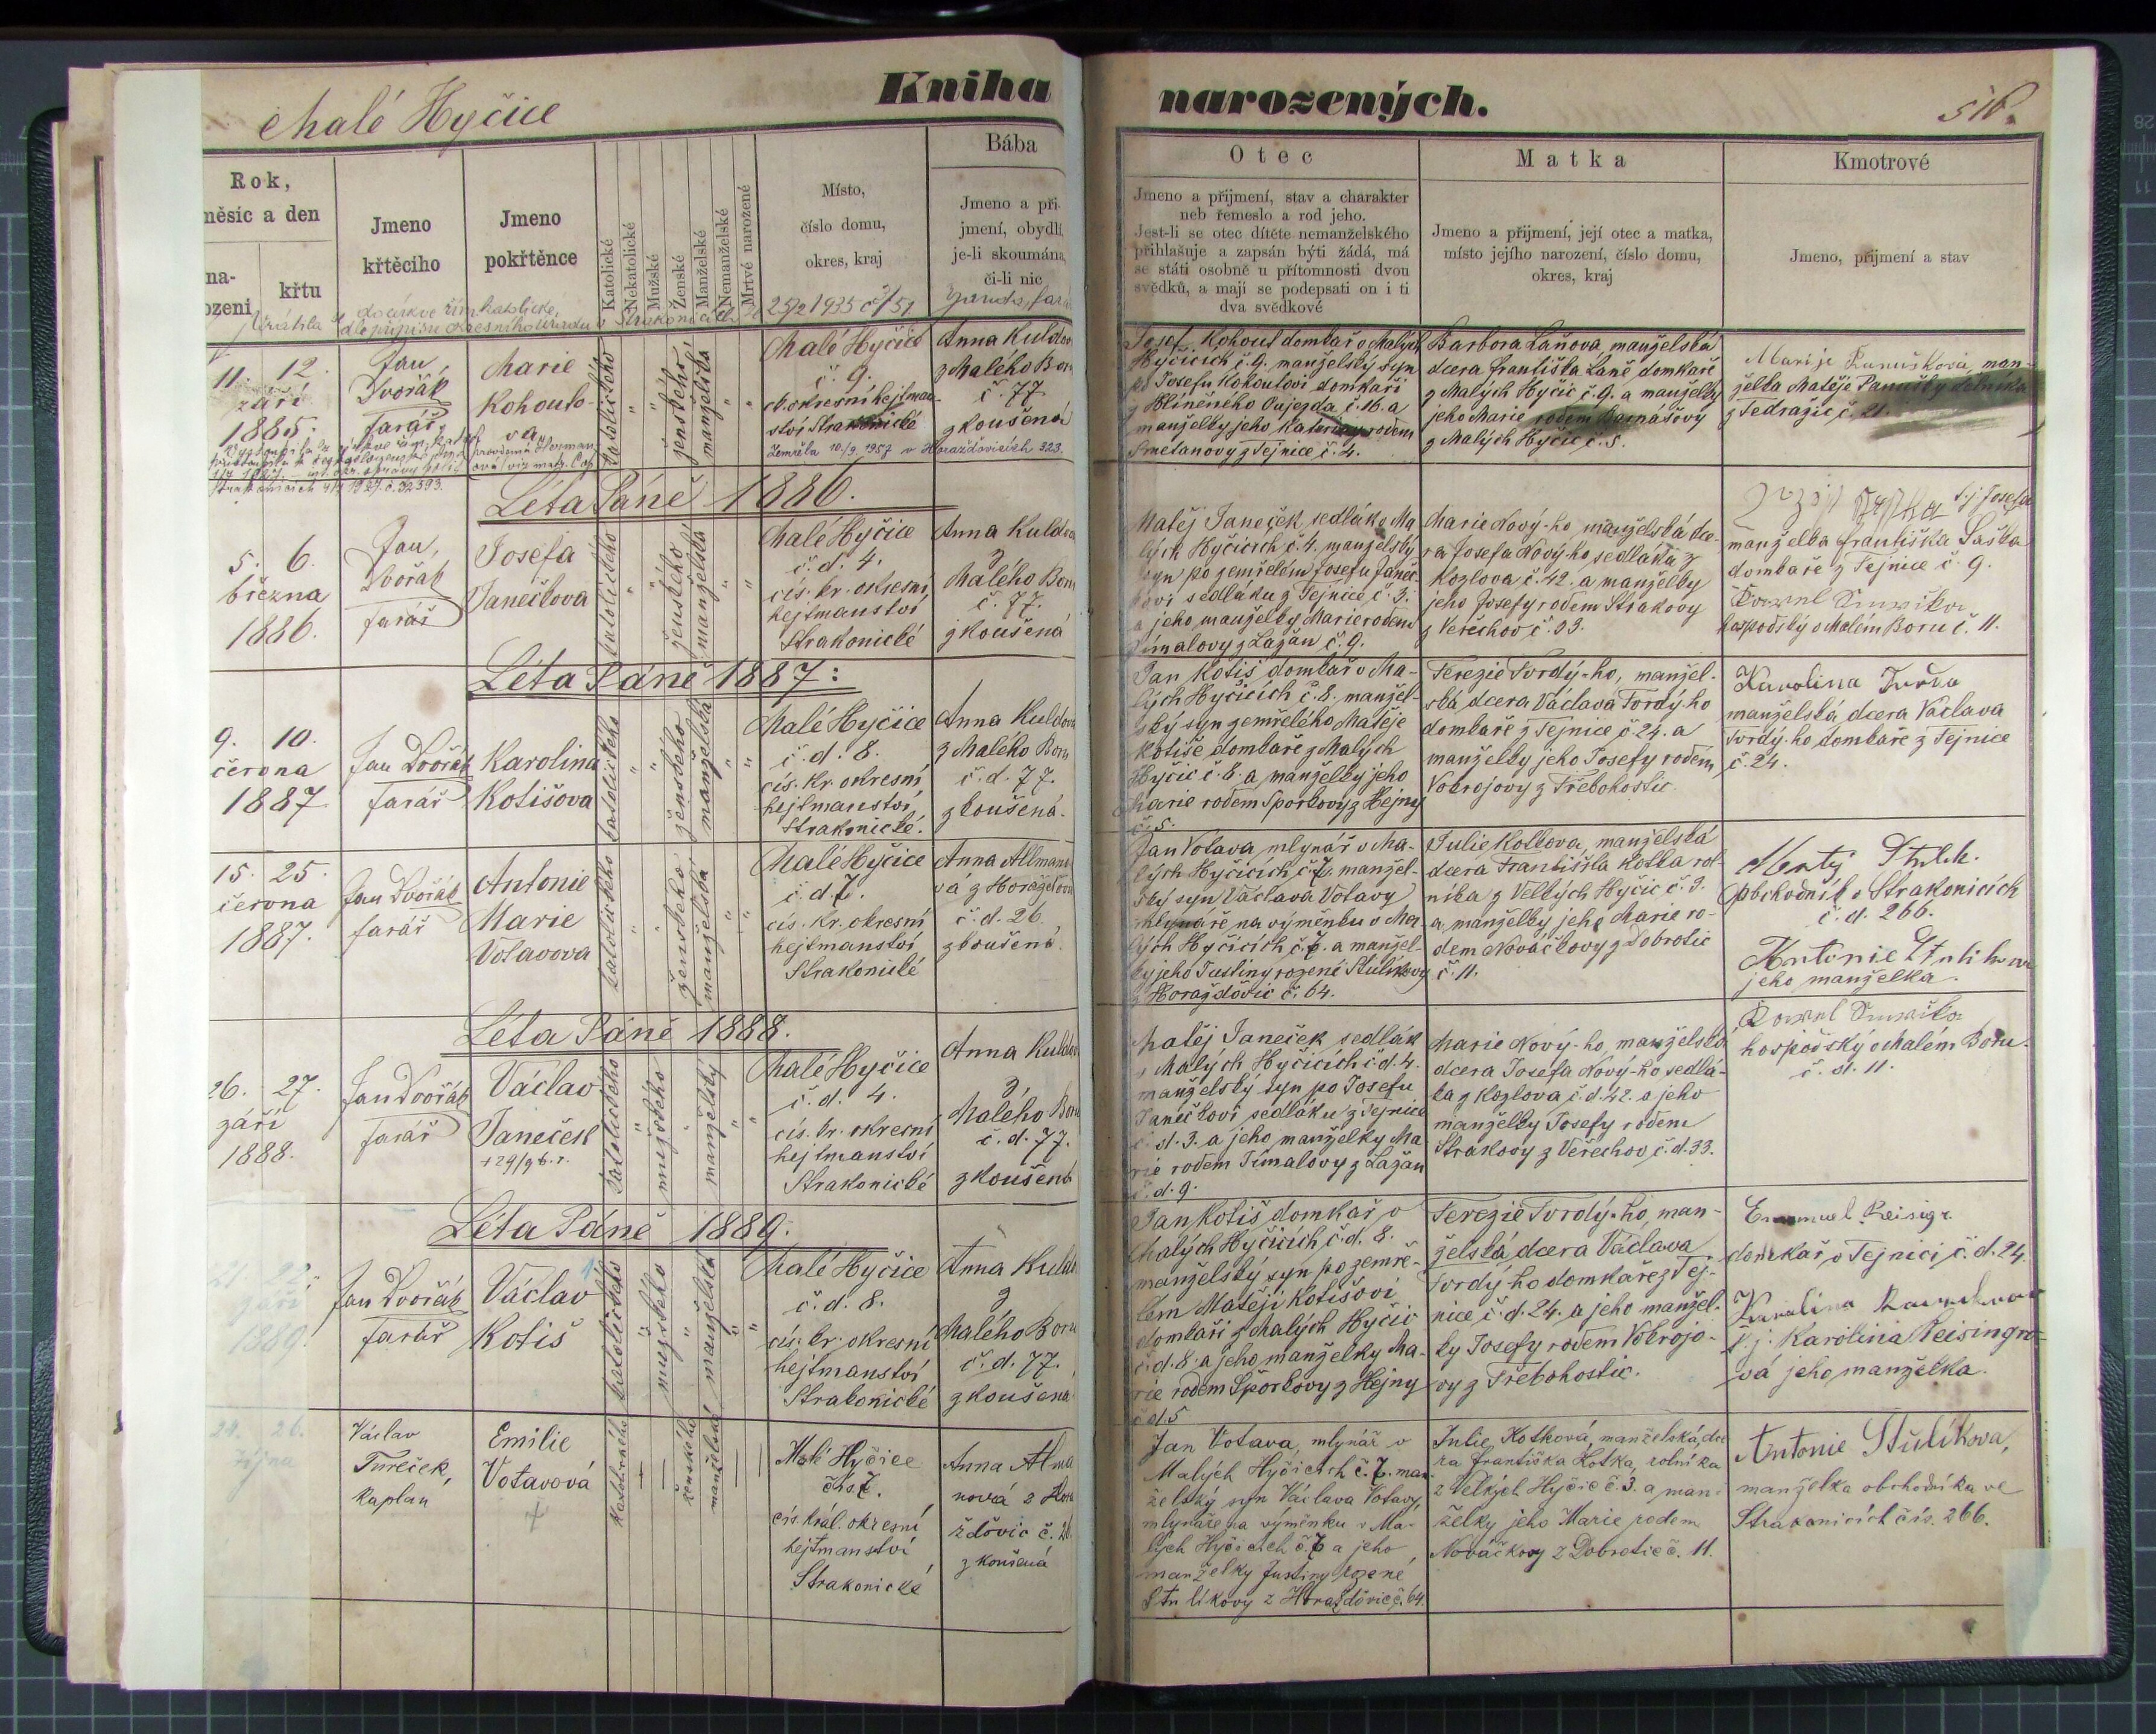 Malé Hyčice
Kniha narozených.
516.
Rok,
měsíc a den
na-
ození
křtu
Jmeno
křtěcího
Jmeno
pokřtěnce
Katolické
Nekatolické
Mužské
Ženské
Manželské
Nemanželské
Mrtvé narozené
Místo,
číslo domu,
okres, kraj
Bába
Jmeno a při-
jmení, obydlí
je-li skoumána
či-li nic
Otec
Jmeno a přijmení, stav a charakter
neb řemeslo a rod jeho.
Jest-li se otec dítěte nemanželského
přihlašuje a zapsán býti žádá, má
se státi osobně u přítomnosti dvou
svědků, a mají se podepsati on i ti
dva svědkové
Matka
Jmeno a přijmení, její otec a matka,
místo jejího narození, číslo domu,
okres, kraj
Kmotrové
Jmeno, přijmení a stav
11. 12.
září
1885.
Jan
Dvořák
farář
Marie
Kohouto-
va
katolického
ženského
manželská
Malé Hyčice
č. 9.
okresní hejtman-
ství Strakonické
Zemřela 10/9. 1957 v Horažďovicích 323.
Anna Kuldova
z Malého Boru
č. 77.
zkoušená
Josef Kohout domkař v Malých
Hyčicích č. 9. manželský syn
po Josefu Kohoutovi domkáři
z Újezda č. 16. a
manželky jeho Kateřiny rodem
Smetanovy z Tejnice č. 4.
Barbora Laňova manželská
dcera Františka Laně domkaře
z Malých Hyčic č. 9. a manželky
jeho Marie rodem
z Malých Hyčic č. 5.
Marije man-
želka Matěje
z Tedražic č. 21.
Léta Páně 1886.
5. 6.
března
1886.
Jan
Dvořák
farář
Josefa
Janečkova
katolického
ženského
manželská
Malé Hyčice
č. d. 4.
cís. kr. okresní
hejtmanství
Strakonické
Anna Kuldova
z
Malého Boru
č. 77.
zkoušená
Matěj Janeček sedlák v Ma-
lých Hyčicích č. 4. manželský
syn po zemřelém Josefu Janeč-
kovi sedláku z Tejnice č. 3.
a jeho manželky Marie rodem
Tůmalovy z Lažan č. 9.
Marie Nový-ho, manželská dce-
ra Josefa Nový-ho sedláka z
Kozlova č. 42. a manželky
jeho Josefy rodem Strakovy
z Veřechov č. 33.
t. j. Josefa
manželka Františka Saška
domkaře z Tejnice č. 9.
hospodský v Malém Boru č. 11.
Léta Páně 1887:
9. 10.
června
1887
Jan Dvořák
farář
Karolina
Kotišova
katolického
ženského
manželská
Malé Hyčice
č. d. 8.
cís. kr. okresní
hejtmanství
Strakonické.
Anna Kuldova
z Malého Boru
č. d. 77.
zkoušená.
Jan Kotiš domkař v Ma-
lých Hyčicích č. 8. manžel-
ský syn zemřelého Matěje
Kotiše domkaře z Malých
Hyčic č. 8. a manželky jeho
Marie rodem Šporkovy z Hejny
č. 5.
Terezie Tvrdý-ho, manžel-
ská dcera Václava Tvrdý-ho
domkaře z Tejnice č. 24. a
manželky jeho Josefy rodem
Vokrojovy z Třebohostic.
Karolina
manželská dcera Václava
Tvrdý-ho domkaře z Tejnice
č. 24.
15. 25.
června
1887.
Jan Dvořák
farář
Antonie
Marie
Votavova
katolického
ženského
manželská
Malé Hyčice
č. d. 7.
cís. kr. okresní
hejtmanství
Strakonické
Anna Allmano-
vá z Horažďovic
č. d. 26.
zkoušená.
Jan Votava mlynář v Ma-
lých Hyčicích č. 7. manžel-
ský syn Václava Votavy
mlynáře na výměnku v Ma-
lých Hyčicích č. 7. a manžel-
ky jeho Justiny rozené Stulíkovy
z Horažďovic č. 64.
Julie Kotkova, manželská
dcera Františka Kotka rol-
níka z Velkých Hyčic č. 3.
a manželky jeho Marie ro-
dem Nováčkovy z Dobrotic
č. 11.
obchodník v Strakonicích
č. d. 266.
Antonie Stulikova
jeho manželka.
Léta Páně 1888.
26. 27.
září
1888.
Jan Dvořák
farář
Václav
Janeček
+29/9 b. r.
katolického
mužského
manželský
Malé Hyčice
č. d. 4.
cís. kr. okresní
hejtmanství
Strakonické
Anna Kuldova
z
Malého Boru
č. d. 77.
zkoušená
Matěj Janeček sedlák
v Malých Hyčicích č. d. 4.
manželský syn po Josefu
Janečkovi sedláku z Tejnice
č. d. 3. a jeho manželky Ma-
rie rodem Tůmalovy z Lažan
č. d. 9.
Marie Nový-ho, manželská
dcera Josefa Nový-ho sedlá-
ka z Kozlova č. d. 42. a jeho
manželky Josefy rodem
Strakovy z Veřechov č. d. 33.
hospodský v Malém Boru.
č. d. 11.
Léta Páně 1889.
21. 22.
září
1889.
Jan Dvořák
farář
Václav
Kotiš
katolického
mužského
manželská
Malé Hyčice
č. d. 8.
cís. kr. okresní
hejtmanství
Strakonické
Anna Kuldova
z
Malého Boru
č. d. 77.
zkoušená
Jan Kotiš domkař v
Malých Hyčicích č. d. 8.
manželský syn po zemře-
lém Matěji Kotišovi
domkaři z Malých Hyčic
č. d. 8. a jeho manželky Ma-
rie rodem Šporkovy z Hejny
č. d. 5
Terezie Tvrdý-ho, man-
želská dcera Václava
Tvrdý-ho domkaře z Tej-
nice č. d. 24. a jeho manžel-
ky Josefy rodem Vokrojo-
vy z Třebohostic.
Emanuel Reisigr.
domkař v Tejnici č. d. 24.
Karolina
t. j. Karolina Reisingro-
vá jeho manželka.
24. 26.
října
Václav
Tureček,
kaplan
Emilie
Votavová
katolického
ženského
manželská
Malé Hyčice
čís. 7.
cís. král. okresní
hejtmanství
Strakonické
Anna Alma-
nová z Hora-
žďovic č. 26.
zkoušená
Jan Votava, mlynář v
Malých Hyčicích č. 7. man-
želský syn Václava Votavy,
mlynáře na výměnku v Ma-
lých Hyčicích č. 7 a jeho
manželky Justiny rozené
Stulíkovy z Horažďovic č. 64.
Julie Kotková, manželská dce-
ra Františka Kotka, rolníka
z Velkých Hyčic č. 3. a man-
želky jeho Marie rodem
Nováčkovy z Dobrotic č. 11.
Antonie Stulíkova,
manželka obchodníka ve
Strakonicích čís. 266.